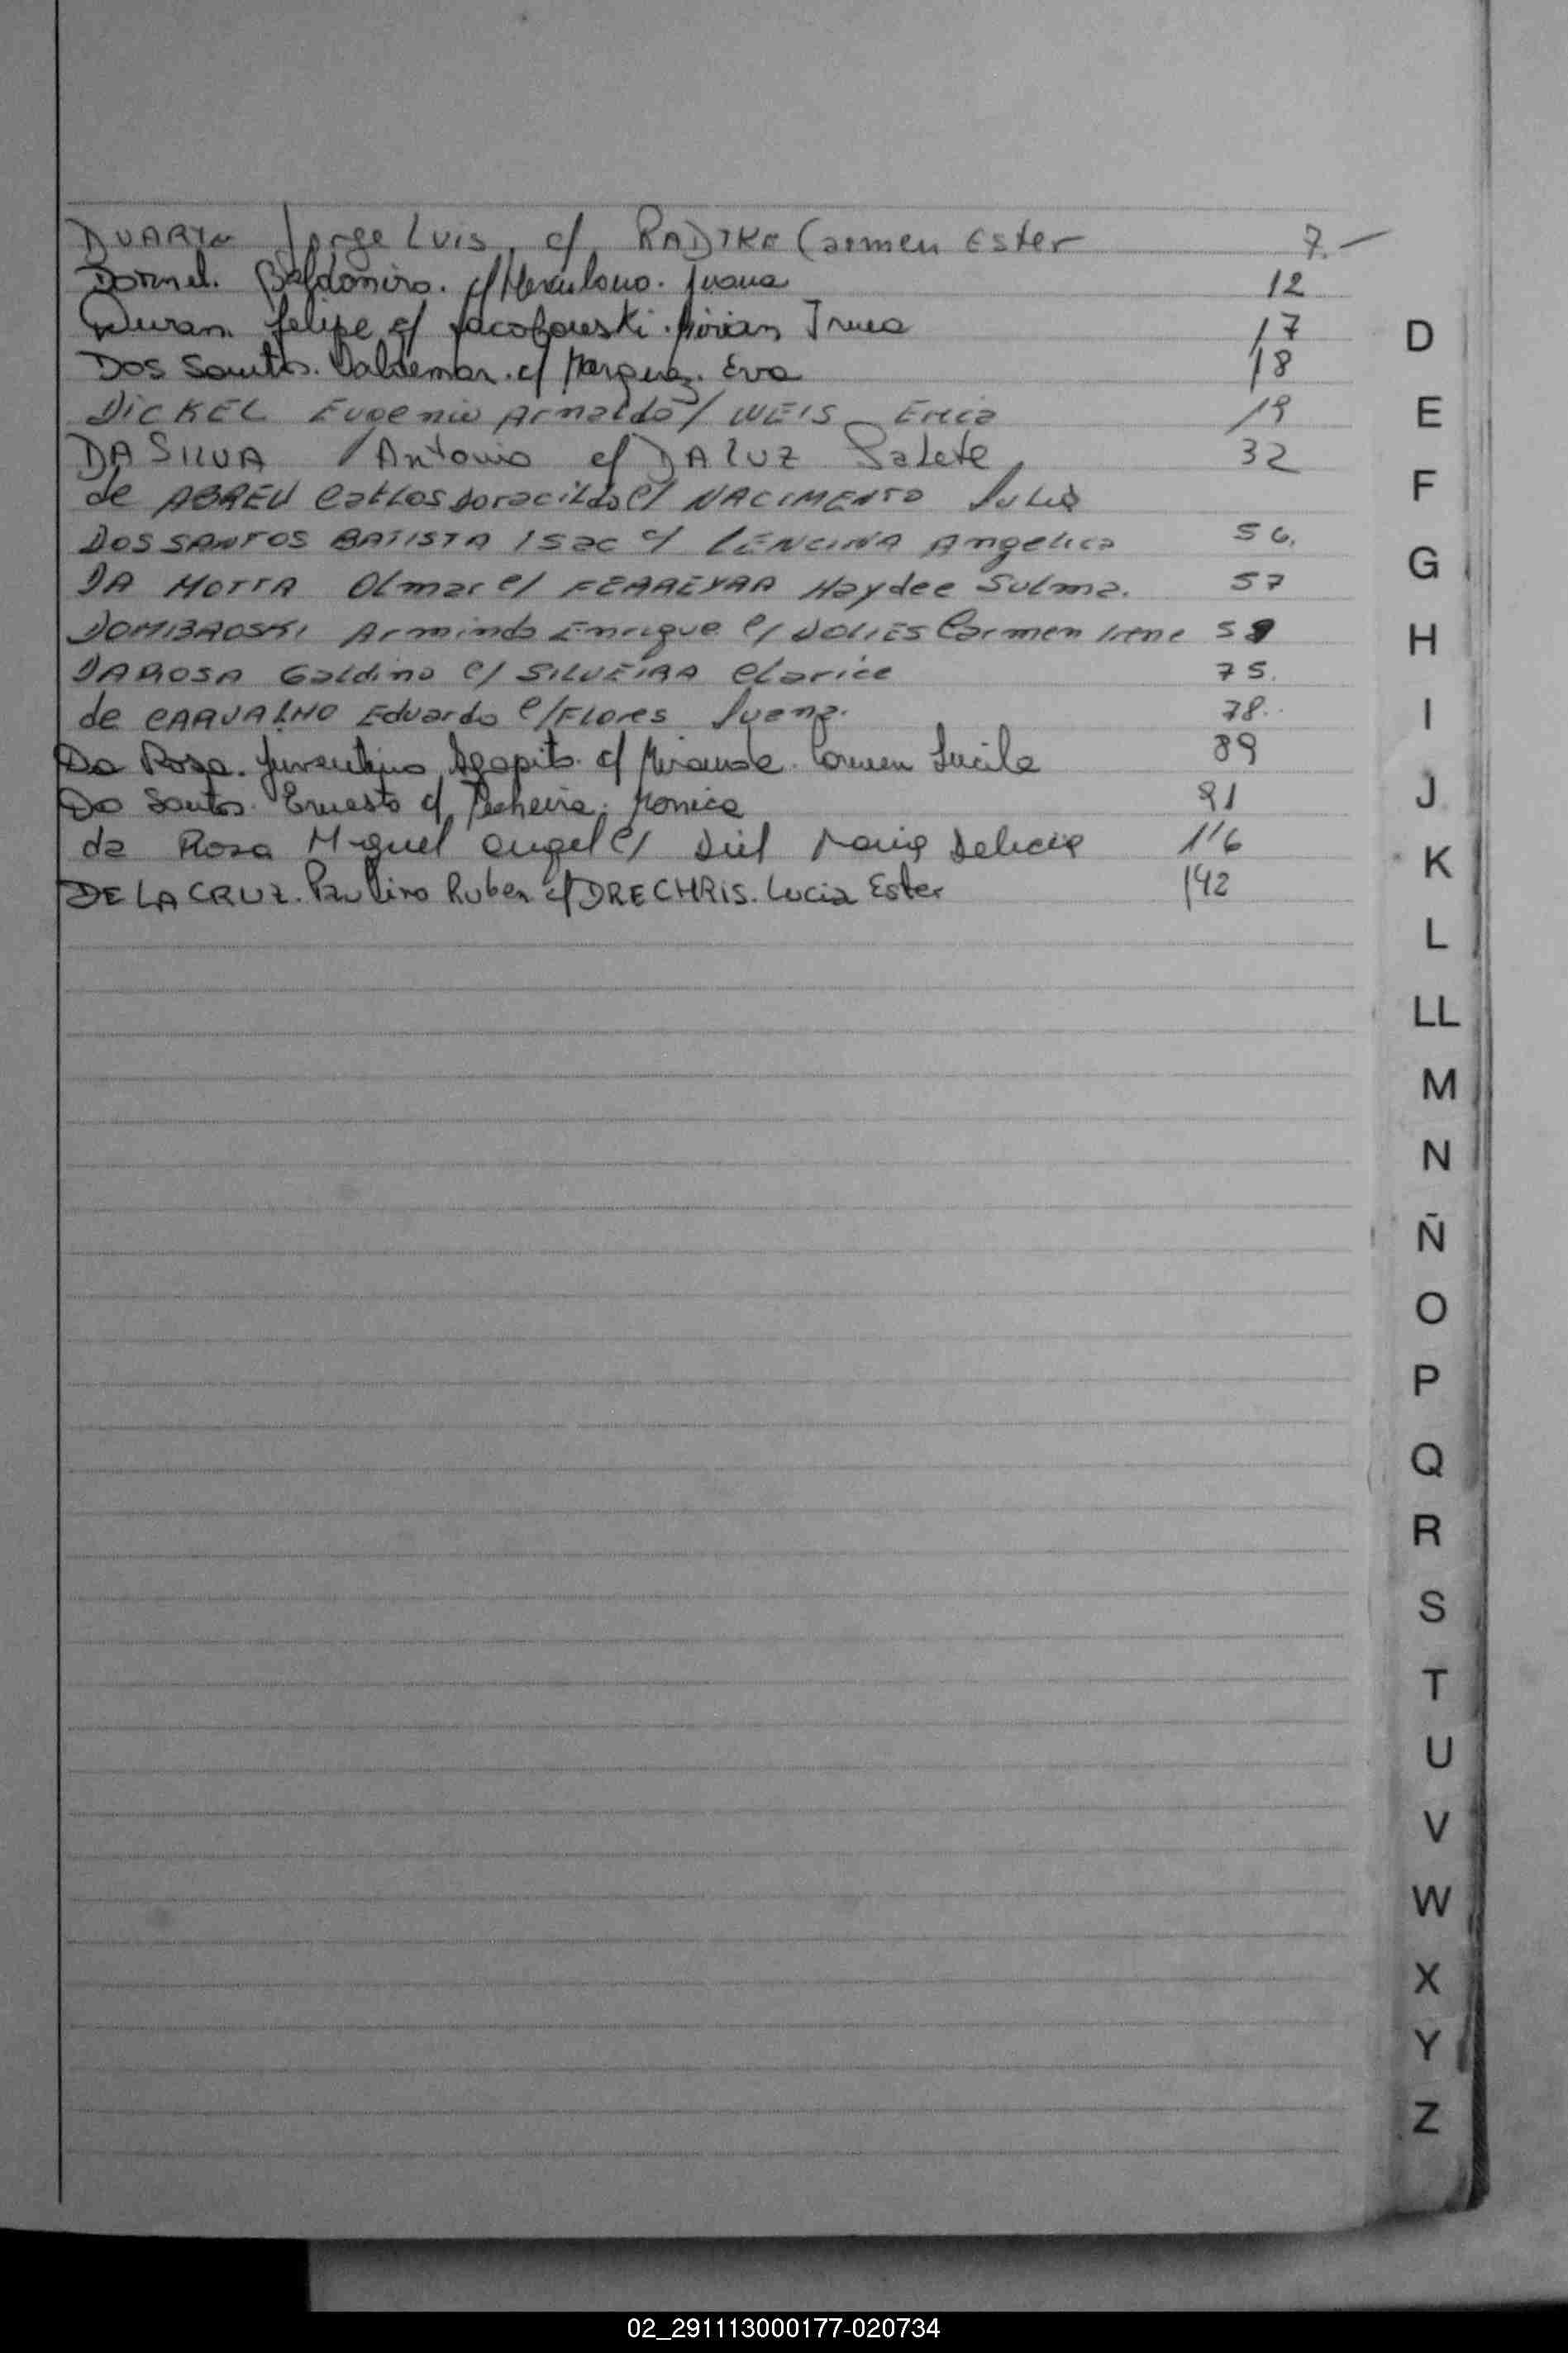 DUARTE Jorge Luis. c/ RADTKE Carmen Ester 7.-
Dornel. Baldomiro. c/ Herculano. Juana 12
Duran. Felipe c/ Jacobowski. Mirian Irma 17
Dos Santos. Valdemar. c/ Marquez. Eva 18
DICKEL Eugenio Arnaldo / WEIS Erica 19
DA SILVA Antonio c/ DA LUZ Salete 32
de ABREU Carlos Doracildo c/ NACIMENTO Julia
DOS SANTOS BATISTA Isac c/ LENCINA Angelica 56.
DA MOTTA Olmar c/ FERREYRA Haydee Sulma. 57
DOMBROSKI Armindo Enrique c/ Carmen Irene
DA ROSA Galdino c/ SILVEIRA Clarice 75.
de CARVALHO Eduardo c/ FLORES Juana. 78.
Da Rosa. Juventino Agapito. c/ Miranda. Carmen Lucila 89
Do Santos. Ernesto c/ Monica 91
da Rosa Miguel angel c/ Diel Maria Delicia 116
DE LA CRUZ. Paulino Ruben c/ DRECHRIS. Lucia Ester 142
D
E
F
G
H
I
J
K
L
LL
M
N
Ñ
O
P
Q
R
S
T
U
V
W
X
Y
Z
02_291113000177-020734